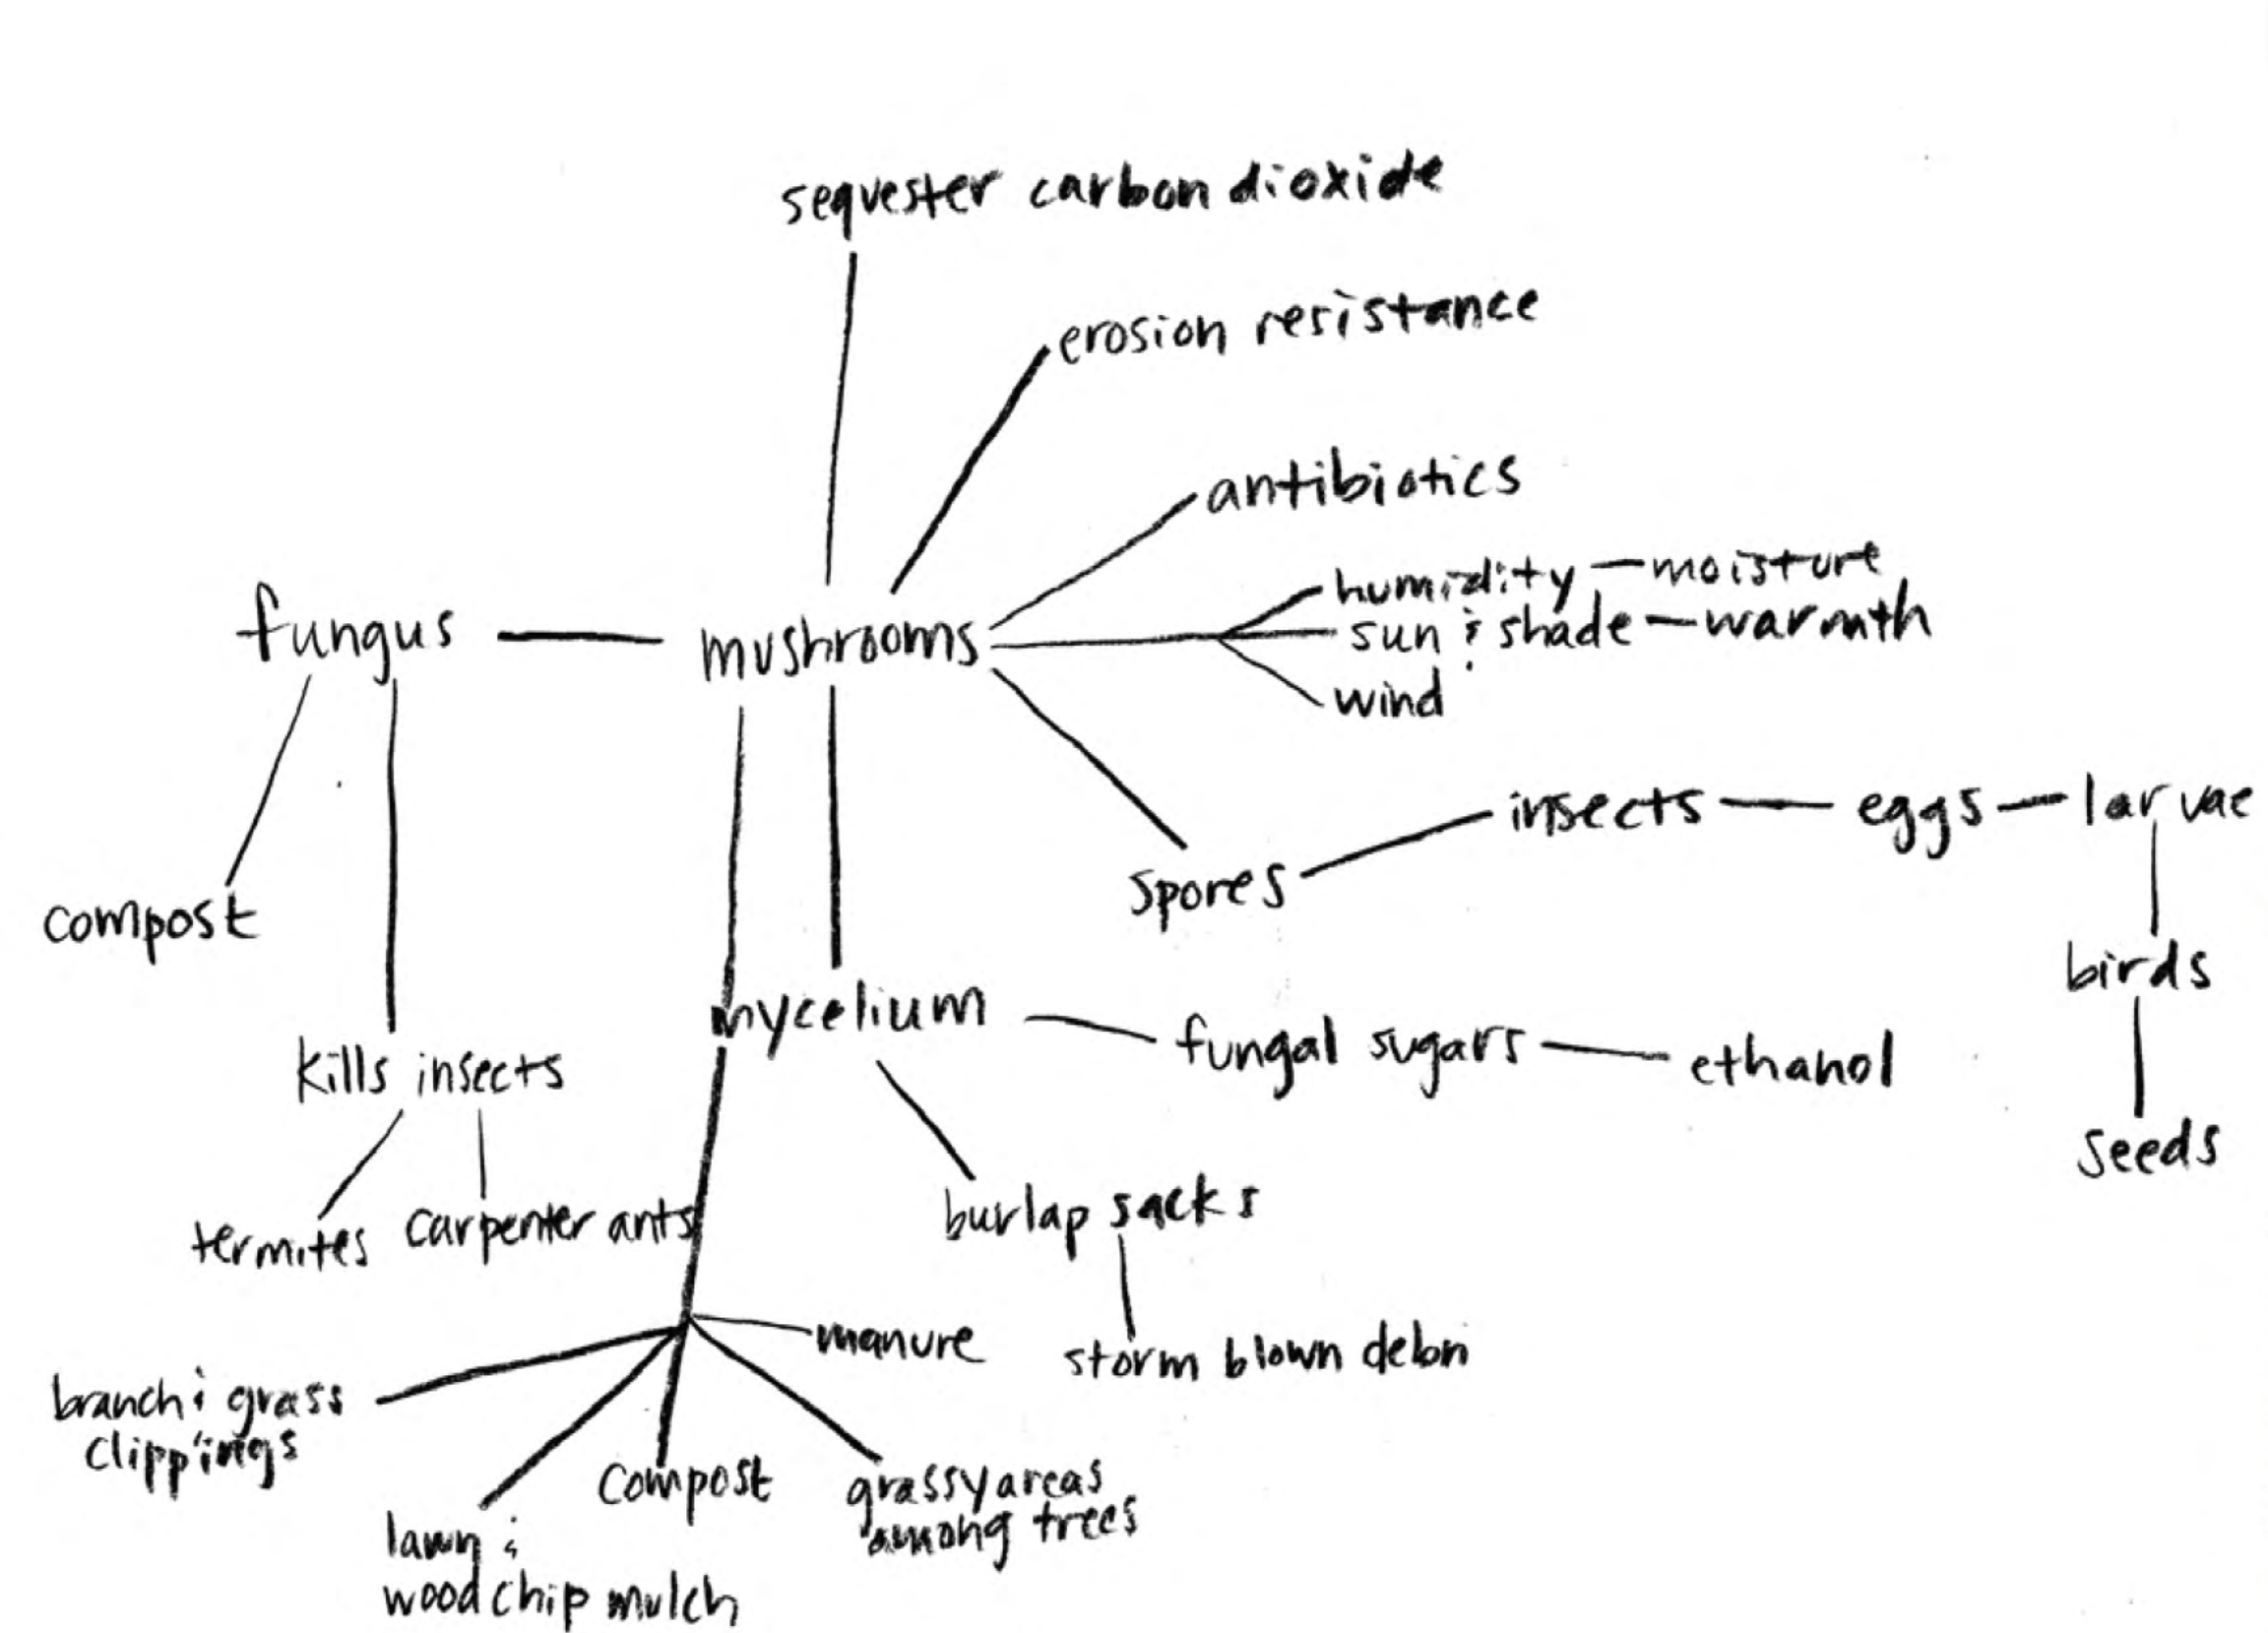 sequester carbon dioxide
erosion resistance
antibiotics
humidity — moisture
fungus
mushrooms
sun & shade — warmth
wind
insects
eggs
larvae
compost
spores
birds
mycelium
fungal sugars
ethanol
kills insects
seeds
termites
carpenter ants
burlap sacks
manure
storm blown debri
branch & grass
clippings
compost
grassy areas
among trees
lawn &
wood chip mulch